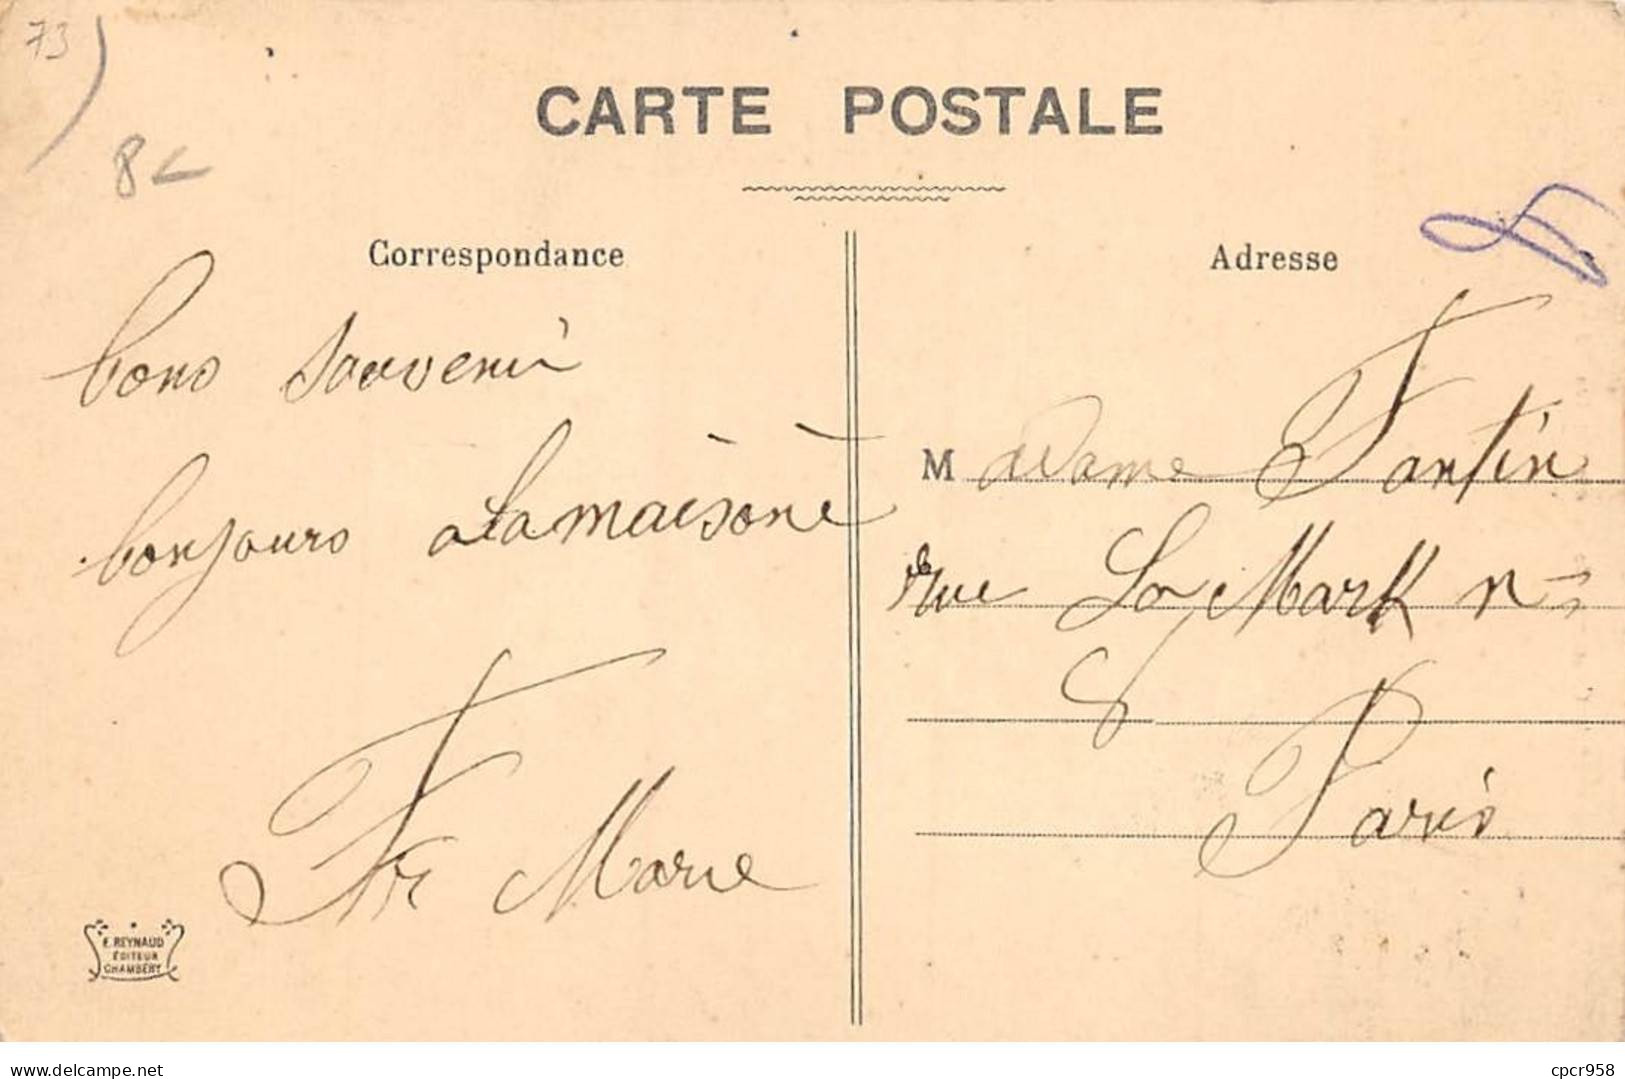 73
8
CARTE POSTALE
Correspondance
bons souvenir
bonjours a la maisone
Fr Marie
E. REYNAUD
ÉDITEUR
CHAMBÉRY
Adresse
Madame Fantin
rue La Mark n
8
Paris
www.delcampe.net
cpcr958